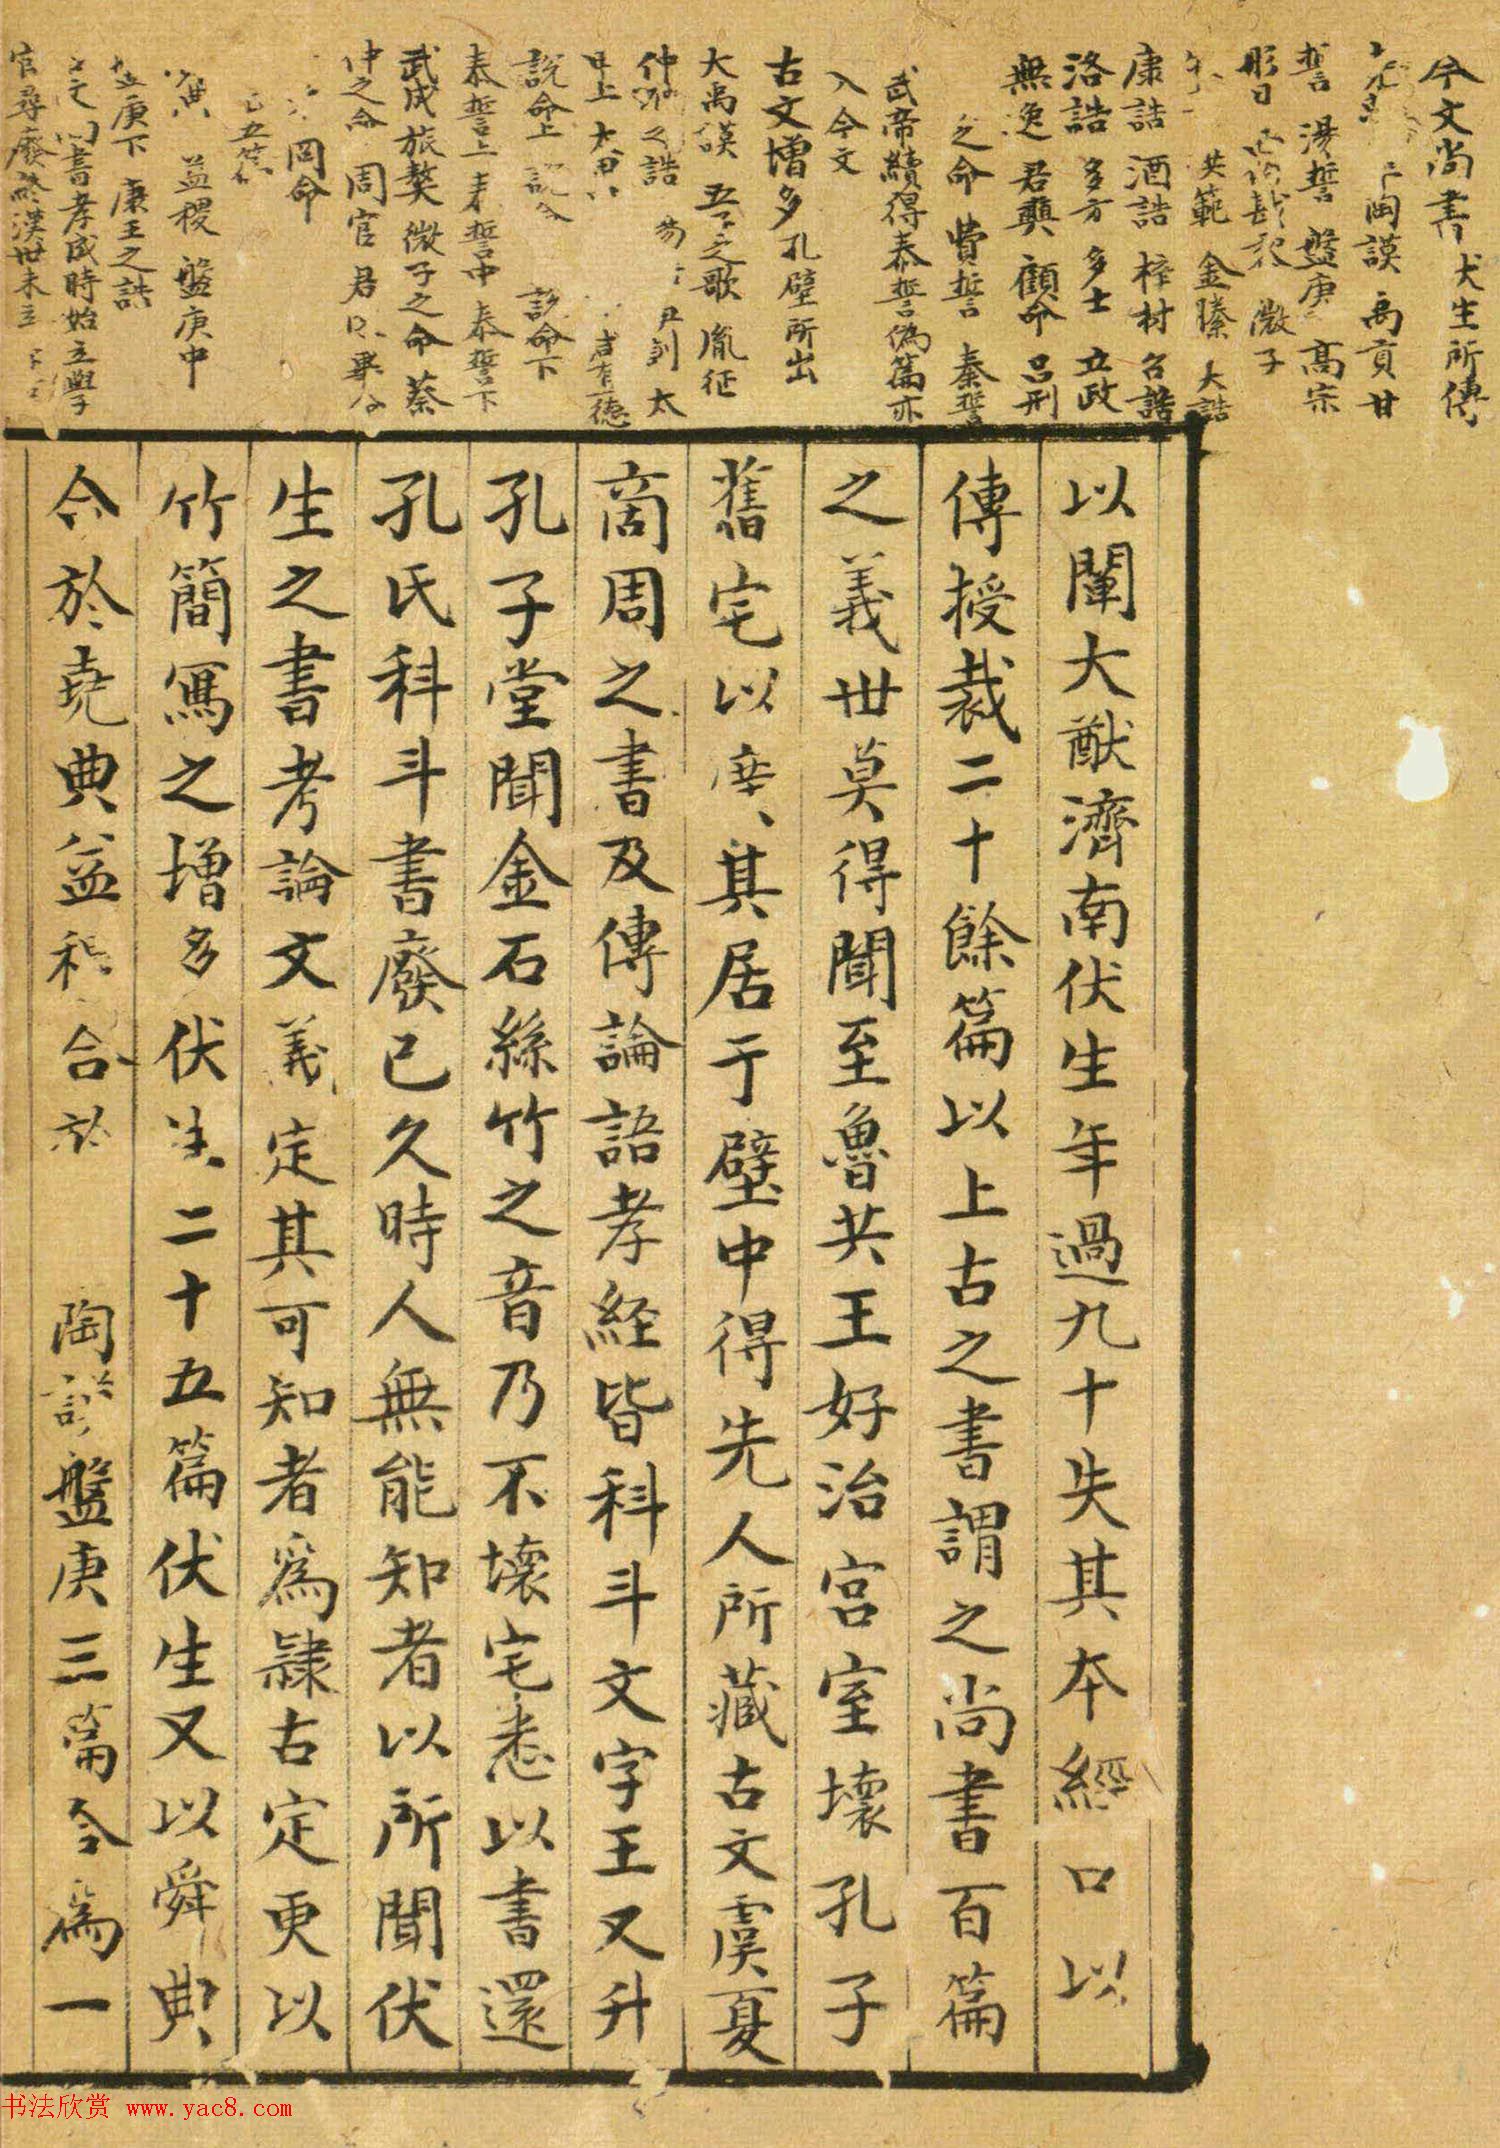 今文尚書 伏生所傳
陶謨 禹貢 甘
誓 湯誓 盤庚 高宗
肜日 西伯戡黎 微子
洪範 金縢 大誥
康誥 酒誥 梓材 召誥
洛誥 多方 多士 立政
無逸 君奭 顧命 呂刑
之命 費誓 秦誓
武帝續得泰誓偽篇亦
入今文
古文增多 孔壁所出
大禹謨 五 之歌 胤征
仲 之誥 太
甲上 太甲 有一德
說命上 說命 說命下
泰誓上 泰誓中 泰誓下
武成 旅獒 微子之命 蔡
仲之命 周官 君 畢
冏命
五篇
益稷 盤庚中
盤庚下 康王之誥
書孝成時始立學
官尋廢終漢世未立
以闡大猷濟南伏生年過九十失其本經口以
傳授裁二十餘篇以上古之書謂之尚書百篇
之義世莫得聞至魯共王好治宮室壞孔子
舊宅以 其居于壁中得先人所藏古文虞夏
商周之書及傳論語孝経皆科斗文字王又升
孔子堂聞金石絲竹之音乃不壞宅悉以書還
孔氏科斗書廢已久時人無能知者以所聞伏
生之書考論文義定其可知者為隸古定更以
竹簡寫之增多伏生二十五篇伏生又以舜典
合於堯典益稷合於 陶謨盤庚三篇合為一
书法欣赏 www.yac8.com